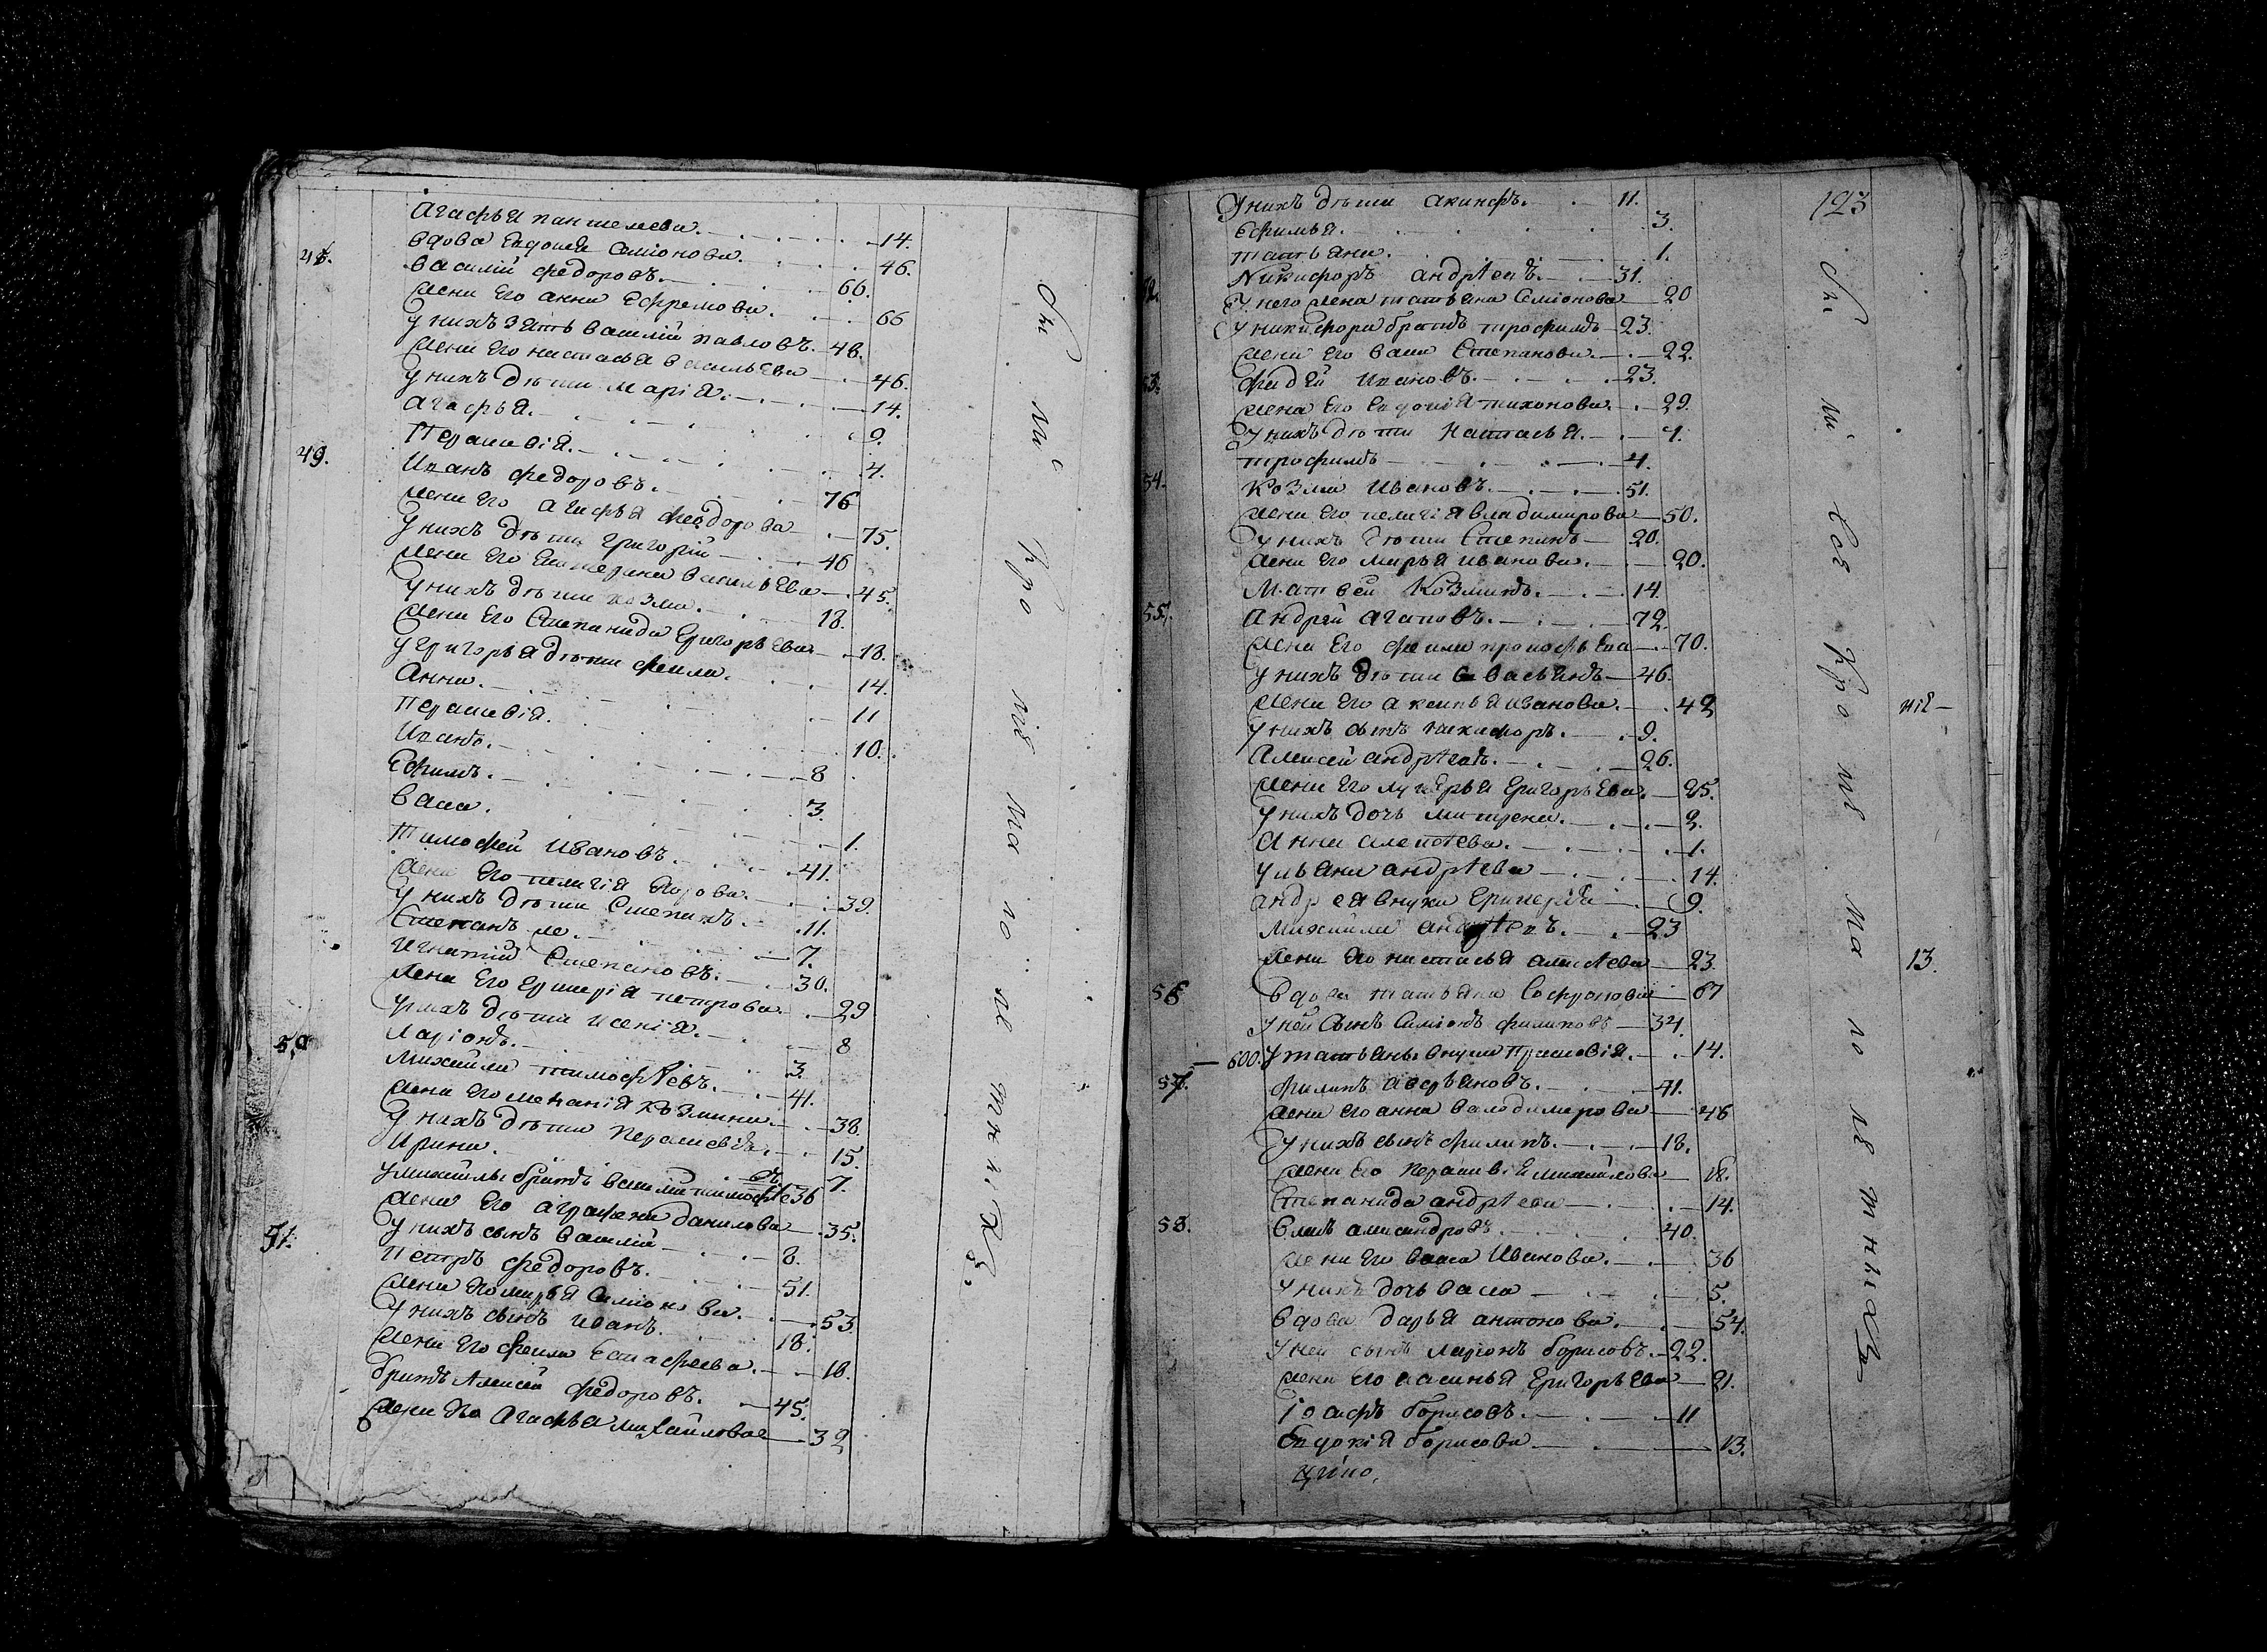 Агафья пантелеева. 14.
вдова Евдокия Симіонова. 46.
48. василій федоровъ. 66.
жена Его анна Ефремова. 66
у нихъ зять василій павловъ. 48.
жена Его настасья васильева 46.
у нихъ дѣти Марія. 14.
агафья. 9.
Перасковія. 4.
49. Иванъ федоровъ. 76
жена Его агафья федорова 75.
у нихъ дѣти григорій 46
жена Его Екатерина васильева 45.
у нихъ дѣти козма. 18.
жена Его Степанида григорьева 18.
у григорья дѣти фекла. 14.
Анна. 11
перасковія. 10.
Иванъ. 8
Ефимъ. 3.
васа. 1.
Тимофей Ивановъ. 41.
жена Его пелагія 39.
у нихъ дѣти Степанъ. 11.
Степанъ же. 7.
Игнатій Степановъ. 30.
жена Его петрова. 29
у нихъ дѣти 8
Ларіонъ. 3.
50 Михайла тимофѣевъ. 41.
жена Его меланія Козмина. 38.
у нихъ дѣти Перасковія. 15.
Ирина. 7.
у михайлы братъ василій тимофѣевъ 36
жена Его аграфена данилова 35.
у нихъ сынъ василій 8.
51. Петръ федоровъ. 51.
жена Его марья Симіонова. 53.
у нихъ сынъ иванъ. 18.
жена Его фекла Естафеева. 18.
братъ Алексей федоровъ. 45.
жена Его Агафья михайлова 32
Оми кро ме ма ло ле тнихъ.
123
У нихъ дѣти акинфъ. 11.
Ефимья. 3.
татьяна. 1.
52. Никифоръ андрѣевъ. 31.
У него жена татьяна Семіонова 20
у никифора братъ трофимъ 23.
жена Его васа Степанова. 22.
53. фадѣй Ивановъ. 23.
жена Его Евдокія тихонова. 29.
у нихъ дѣти Настасья. 7.
трофимъ 4.
54. Козма Ивановъ. 51.
жена Его пелагія владимирова 50.
у нихъ дѣти Степанъ 20.
жена Его марья иванова. 20.
Матвей Козминъ. 14.
55. андрей агаповъ. 72.
жена Его фекла прокофьева 70.
у нихъ дѣти васьянъ 46.
жена Его иванова. 42
у нихъ сынъ никифоръ. 9.
Алексей андрѣевъ. 26.
жена Его лукерья григорьева. 25.
у нихъ дочь матрена. 2.
Анна алексѣева. 1.
ульяна андрѣева 14.
андрея внука 9.
Михайла андрѣевъ. 23
жена Его настасья алексѣева 23.
56 вдова татьяна Софронова 67
у ней Сынъ Симіонъ филиповъ 34.
600. у татьяны внука Прасковія. 14.
57. филипъ аверьяновъ. 41.
жена его анна валодимерова 46
у нихъ сынъ филипъ. 18.
жена Его Перасковія михайлова 18.
Степанида андрѣева 14.
58. александровъ 40.
жена Его васа Иванова. 36
у нихъ дочь васа 5.
вдова дарья антонова. 54.
у ней сынъ ларіонъ борисовъ. 22.
жена Его аксинья григорьева 21.
іосифъ борисовъ. 11
Евдокія борисова 13.
Оми кро ме ма ло ле тнихъ
13.